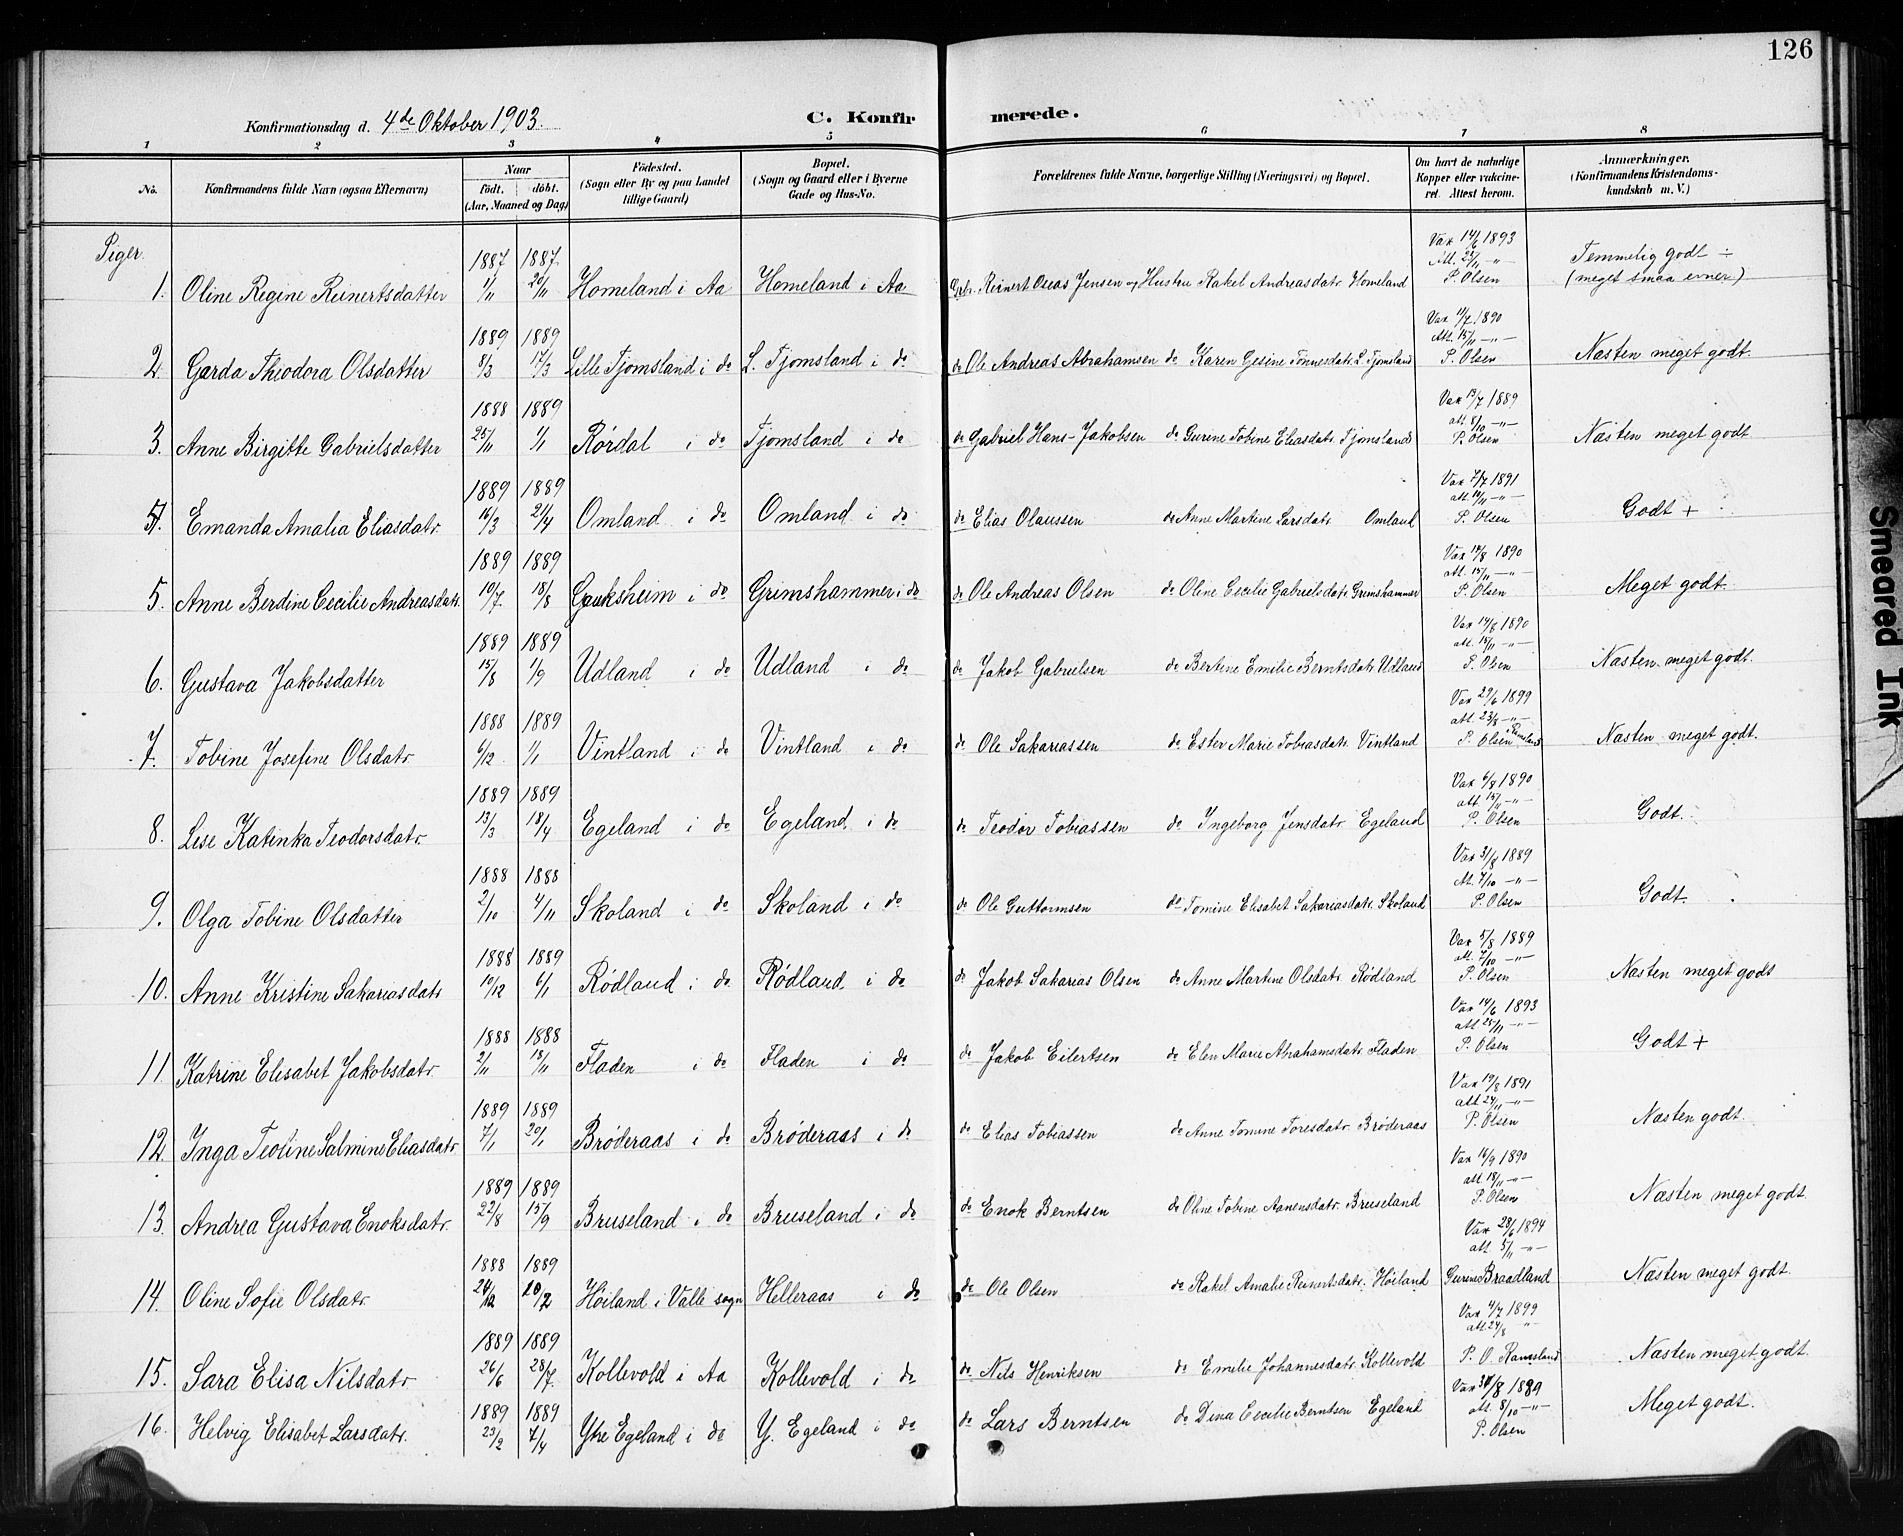 126
Konfirmationsdag d. 4de Oktober 1903. C. Konfirmerede.
1 2 3 4 5 6 7 8
No. Konfirmandens fulde Navn (ogsaa Efternavn) Naar født. døbt. (Aar, Maaned og Dag) Fødested. (Sogn eller By og paa Landet tillige Gaard) Bopæl. (Sogn og Gaard eller i Byerne Gade og Hus-No. Forældrenes fulde Navne, borgerlige Stilling (Næringsvei) og Bopæl. Om havt de naturlige Kopper eller vakcineret. Attest herom. Anmærkninger. (Konfirmandens Kristendomskundskab m. V.)
Piger.
1. Oline Regine Reinertsdatter 1887 1/11 1887 20/11 Homeland i Aa Homeland i Aa Reinert Jensen og Hustru Rakel Andreasdatr. Homeland Vax 14/6 1893 Att. 24/11 -"- P. Olsen Temmelig godt ÷ (meget smaa evner)
2. Garda Theodora Olsdatter 1889 8/3 1889 17/3 Lille Tjomsland i do L. Tjomsland i do do Ole Andreas Abrahamsen do Karen Gesine Tønnesdatr. L. Tjomsland Vax 11/7 1890 Att. 15/11 -"- P. Olsen Næsten meget godt.
3. Anne Birgitte Gabrielsdatter 1888 25/11 1889 1/1 Rørdal i do Tjomsland i do do Gabriel Hans-Jakobsen do Gurine Tobine Eliasdatr. Tjomsland Vax 13/7 1889 att. 8/10 -"- P. Olsen Næsten meget godt
4. Emanda Amalia Eliasdatr. 1889 16/3 1889 21/4 Omland i do Omland i do do Elias Olaussen do Anne Martine Larsdatr Omland Vax 7/7 1891 att. 14/11 -"- P. Olsen Godt +
5. Anne Berdine Cecilie Andreasdatr. 1889 10/7 1889 18/8 Gauksheim i do Grimshammer i do do Ole Andreas Olsen do Oline Cecilie Gabrielsdatr. Grimshammer Vax 14/8 1890 att. 15/11 -"- P. Olsen Meget godt.
6. Gustava Jakobsdatter 1889 15/8 1889 1/9 Udland i do Udland i do do Jakob Gabrielsen do Bertine Emilie Berntsdatr. Udland Vax 14/8 1890 att. 15/11 -"- P. Olsen Næsten meget godt.
7. Tobine Josefine Olsdatr 1888 6/12 1889 1/1 Vintland i do Vintland i do do Ole Sakariassen do Ester Marie Tobiasdatr. Vintland Vax 29/6 1899 att. 23/8 -"- P. Olsen Ramsland Næsten meget godt.
8. Lise Katinka Teodorsdatr. 1889 13/3 1889 18/4 Egeland i do Egeland i do do Teodor Tobiassen do Ingeborg Jensdatr Egeland Vax 6/8 1890 att. 15/11 -"- P. Olsen Godt.
9. Olga Tobine Olsdatter 1888 2/10 1888 4/11 Skoland i do Skoland i do do Ole Guttormsen do Tomine Elisabet Sakariasdatr. Skoland Vax 31/8 1889 Att. 7/10 -"- P. Olsen Godt.
10. Anne Kristine Sakariasdatr 1888 10/12 1889 6/1 Rødland i do Rødland i do do Jakob Sakarias Olsen do Anne Martine Olsdatr. Rødland Vax 5/8 1889 att. 7/10 -"- P. Olsen Næsten meget godt
11. Katrine Elisabet Jakobsdatr. 1888 2/11 1888 18/11 Fladen i do Fladen i do do Jakob Eilertsen do Elen Marie Abrahamsdatr. Fladen Vax 14/6 1893 att. 25/11 -"- P. Olsen Godt +
12. Inga Teoline Salmine Eliasdatr. 1889 7/1 1889 20/1 Brøderaas i do Brøderaas i do do Elias Tobiassen do Anne Tomine Toresdatr. Brøderaas Vax 19/8 1891 att. 24/11 -"- P. Olsen Næsten godt.
13. Andrea Gustava Enoksdatr. 1889 22/8 1889 15/9 Bruseland i do Bruseland i do do Enok Berntsen do Oline Tobine Aanensdatr. Bruseland Vax 16/9 1890 att. 18/11 -"- P. Olsen Næsten meget godt
14. Oline Sofie Olsdatr. 1888 24/12 1889 10/2 Høiland i Valle sogn Helleraas i do do Ole Olsen do Rakel Amalie Reinertsdatr. Høiland Vax 28/6 1894 att. 5/11 -"- Gurine Braadland Næsten meget godt.
15. Sara Elisa Nilsdatr. 1889 26/6 1889 28/7 Kollevold i Aa Kollevold i do do Nils Henriksen do Emelie Johannesdatr. Kollevold Vax 4/7 1899 att. 24/8 " P. O. Ramsland Næsten meget godt.
16. Helvig Elisabet Larsdatr. 1889 23/2 1889 7/4 Ytre Egeland i do Y. Egeland i do do Lars Berntsen do Dina Cecilie Berntsen Egeland Vax 31/8 1889 att. 8/10 -"- P. Olsen Meget godt.
Smeared Ink